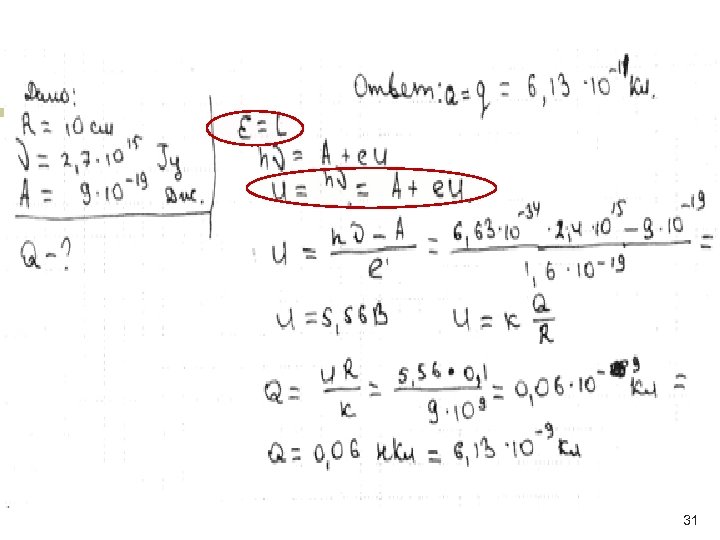 Дано:
R = 10 см
ν = 2,7·10¹⁵ Гц
A = 9·10⁻¹⁹ Дж.
Q – ?
Ответ: Q = q = 6,13·10⁻¹¹ Кл.
ε = L
hν = A + eU
U = hν = A + eU
U = (hν – A)/e = (6,63·10⁻³⁴ · 2,4·10¹⁵ – 9·10⁻¹⁹)/(1,6·10⁻¹⁹) =
U = 5,56 В U = к Q/R
Q = UR/к = (5,56 · 0,1)/(9·10⁹) = 0,06·10⁻⁹ Кл =
Q = 0,06 нКл = 6,13·10⁻⁹ Кл
31